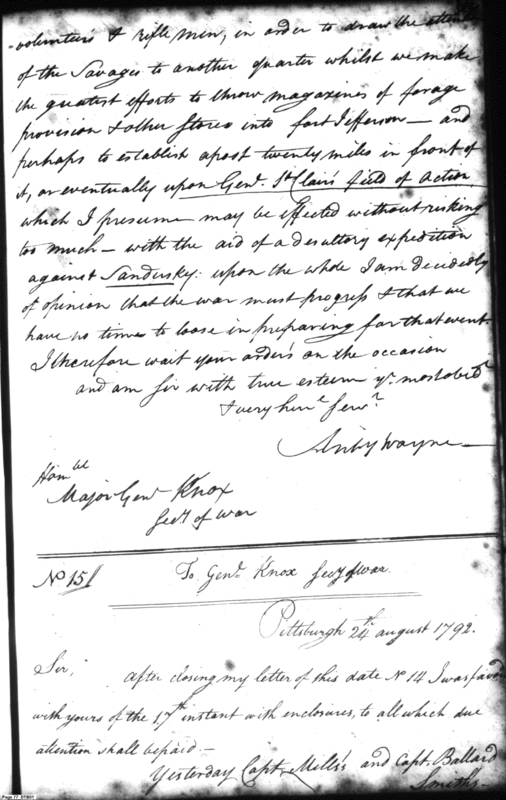 volunteers & riflemen, in order to draw the attenti
of the Savages to another quarter whilst we make
the greatest efforts to throw magazines of forage
provision & other stores into fort Jefferson — and
perhaps to establish a post twenty miles in front of
it, or eventually upon Genl. St Clair's field of action,
which I presume may be effected without risking
too much — with the aid of a desultory expedition
against Sandusky: upon the whole I am decidedly
of opinion that the war must progress & that we
have no time to loose in preparing for that event.
I therefore wait your orders on the occasion
and am Sir with true esteem yr. most obedt
& very humle Servt
Anty Wayne —
Honble
Major Genl Knox
Secy of War
No 15
To Genl. Knox Secy of War.
Pittsburgh 24th august 1792.
Sir,
after closing my letter of this date No 14 I was favd
with yours of the 17th instant with enclosures, to all which due
attention shall be paid —
Yesterday Capt. Mills's and Capt. Ballard
Smith's